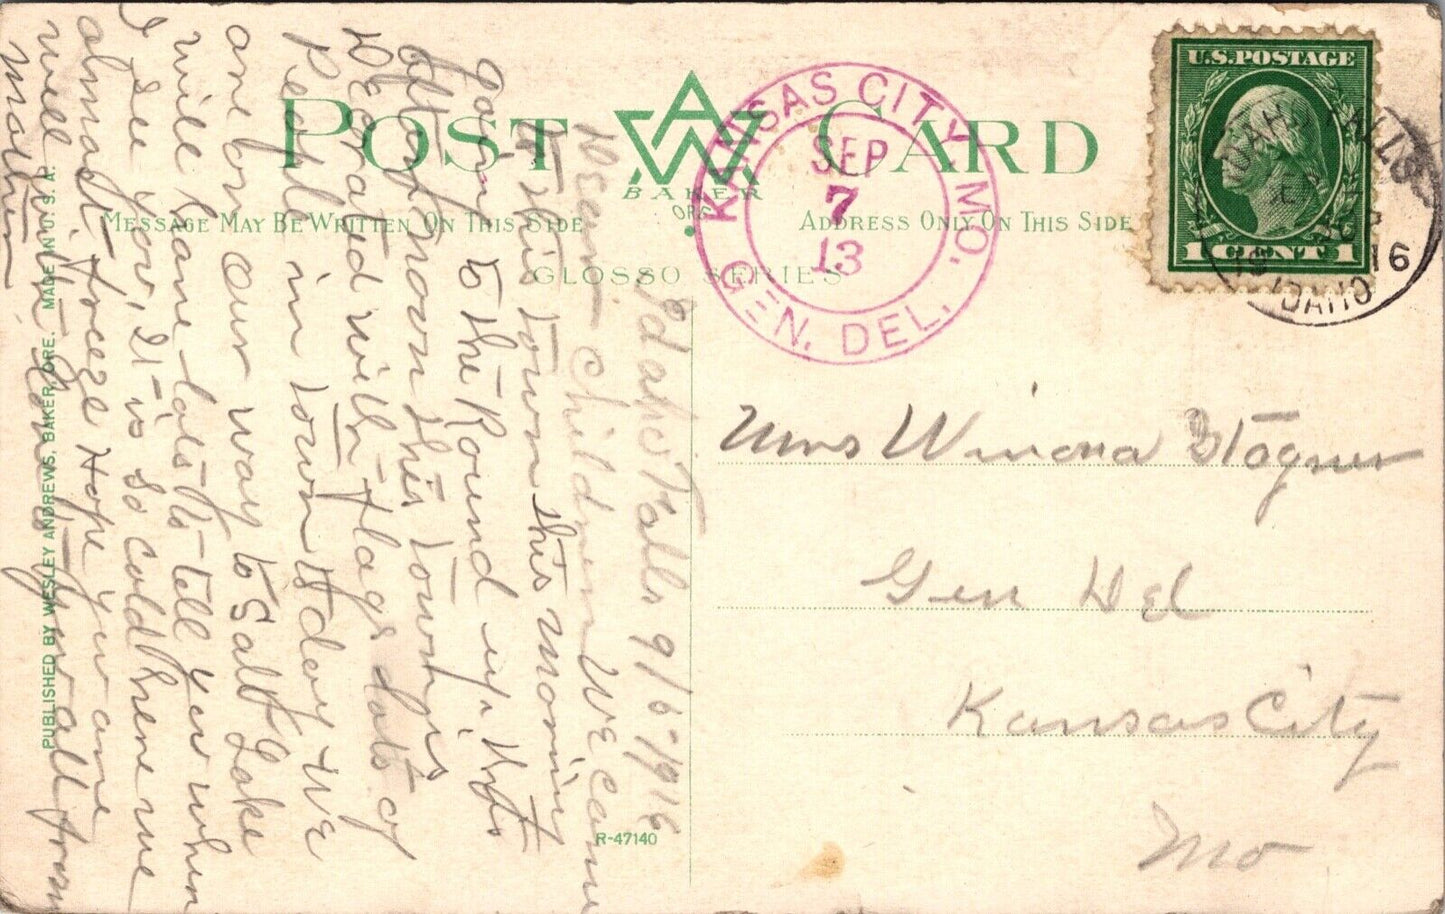 POST CARD
BAKER
ORE.
MESSAGE MAY BE WRITTEN ON THIS SIDE
ADDRESS ONLY ON THIS SIDE
GLOSSO SERIES
KANSAS CITY, MO.
SEP
7
13
GEN. DEL.
U.S. POSTAGE
1 CENT 1
IDAHO FALLS
SEP
16
IDAHO
Idaho Falls 9/6 1916
Dear Children We came
to this Town this morning
going to the Round up. it's
after noon this Town is
Decorated with Flags lots of
People in Town to day We
are on our way to Salt Lake
will have lots to tell you when
I see you, It is so cold here we
almost Freeze Hope you are
well with love to you all from
mother
Mrs Winona Stogner
Gen Del
Kansas City
Mo
R-47140
PUBLISHED BY WESLEY ANDREWS, BAKER, ORE. MADE IN U. S. A.